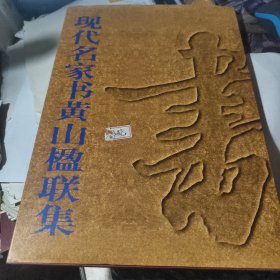 现代名家书黄山楹联集